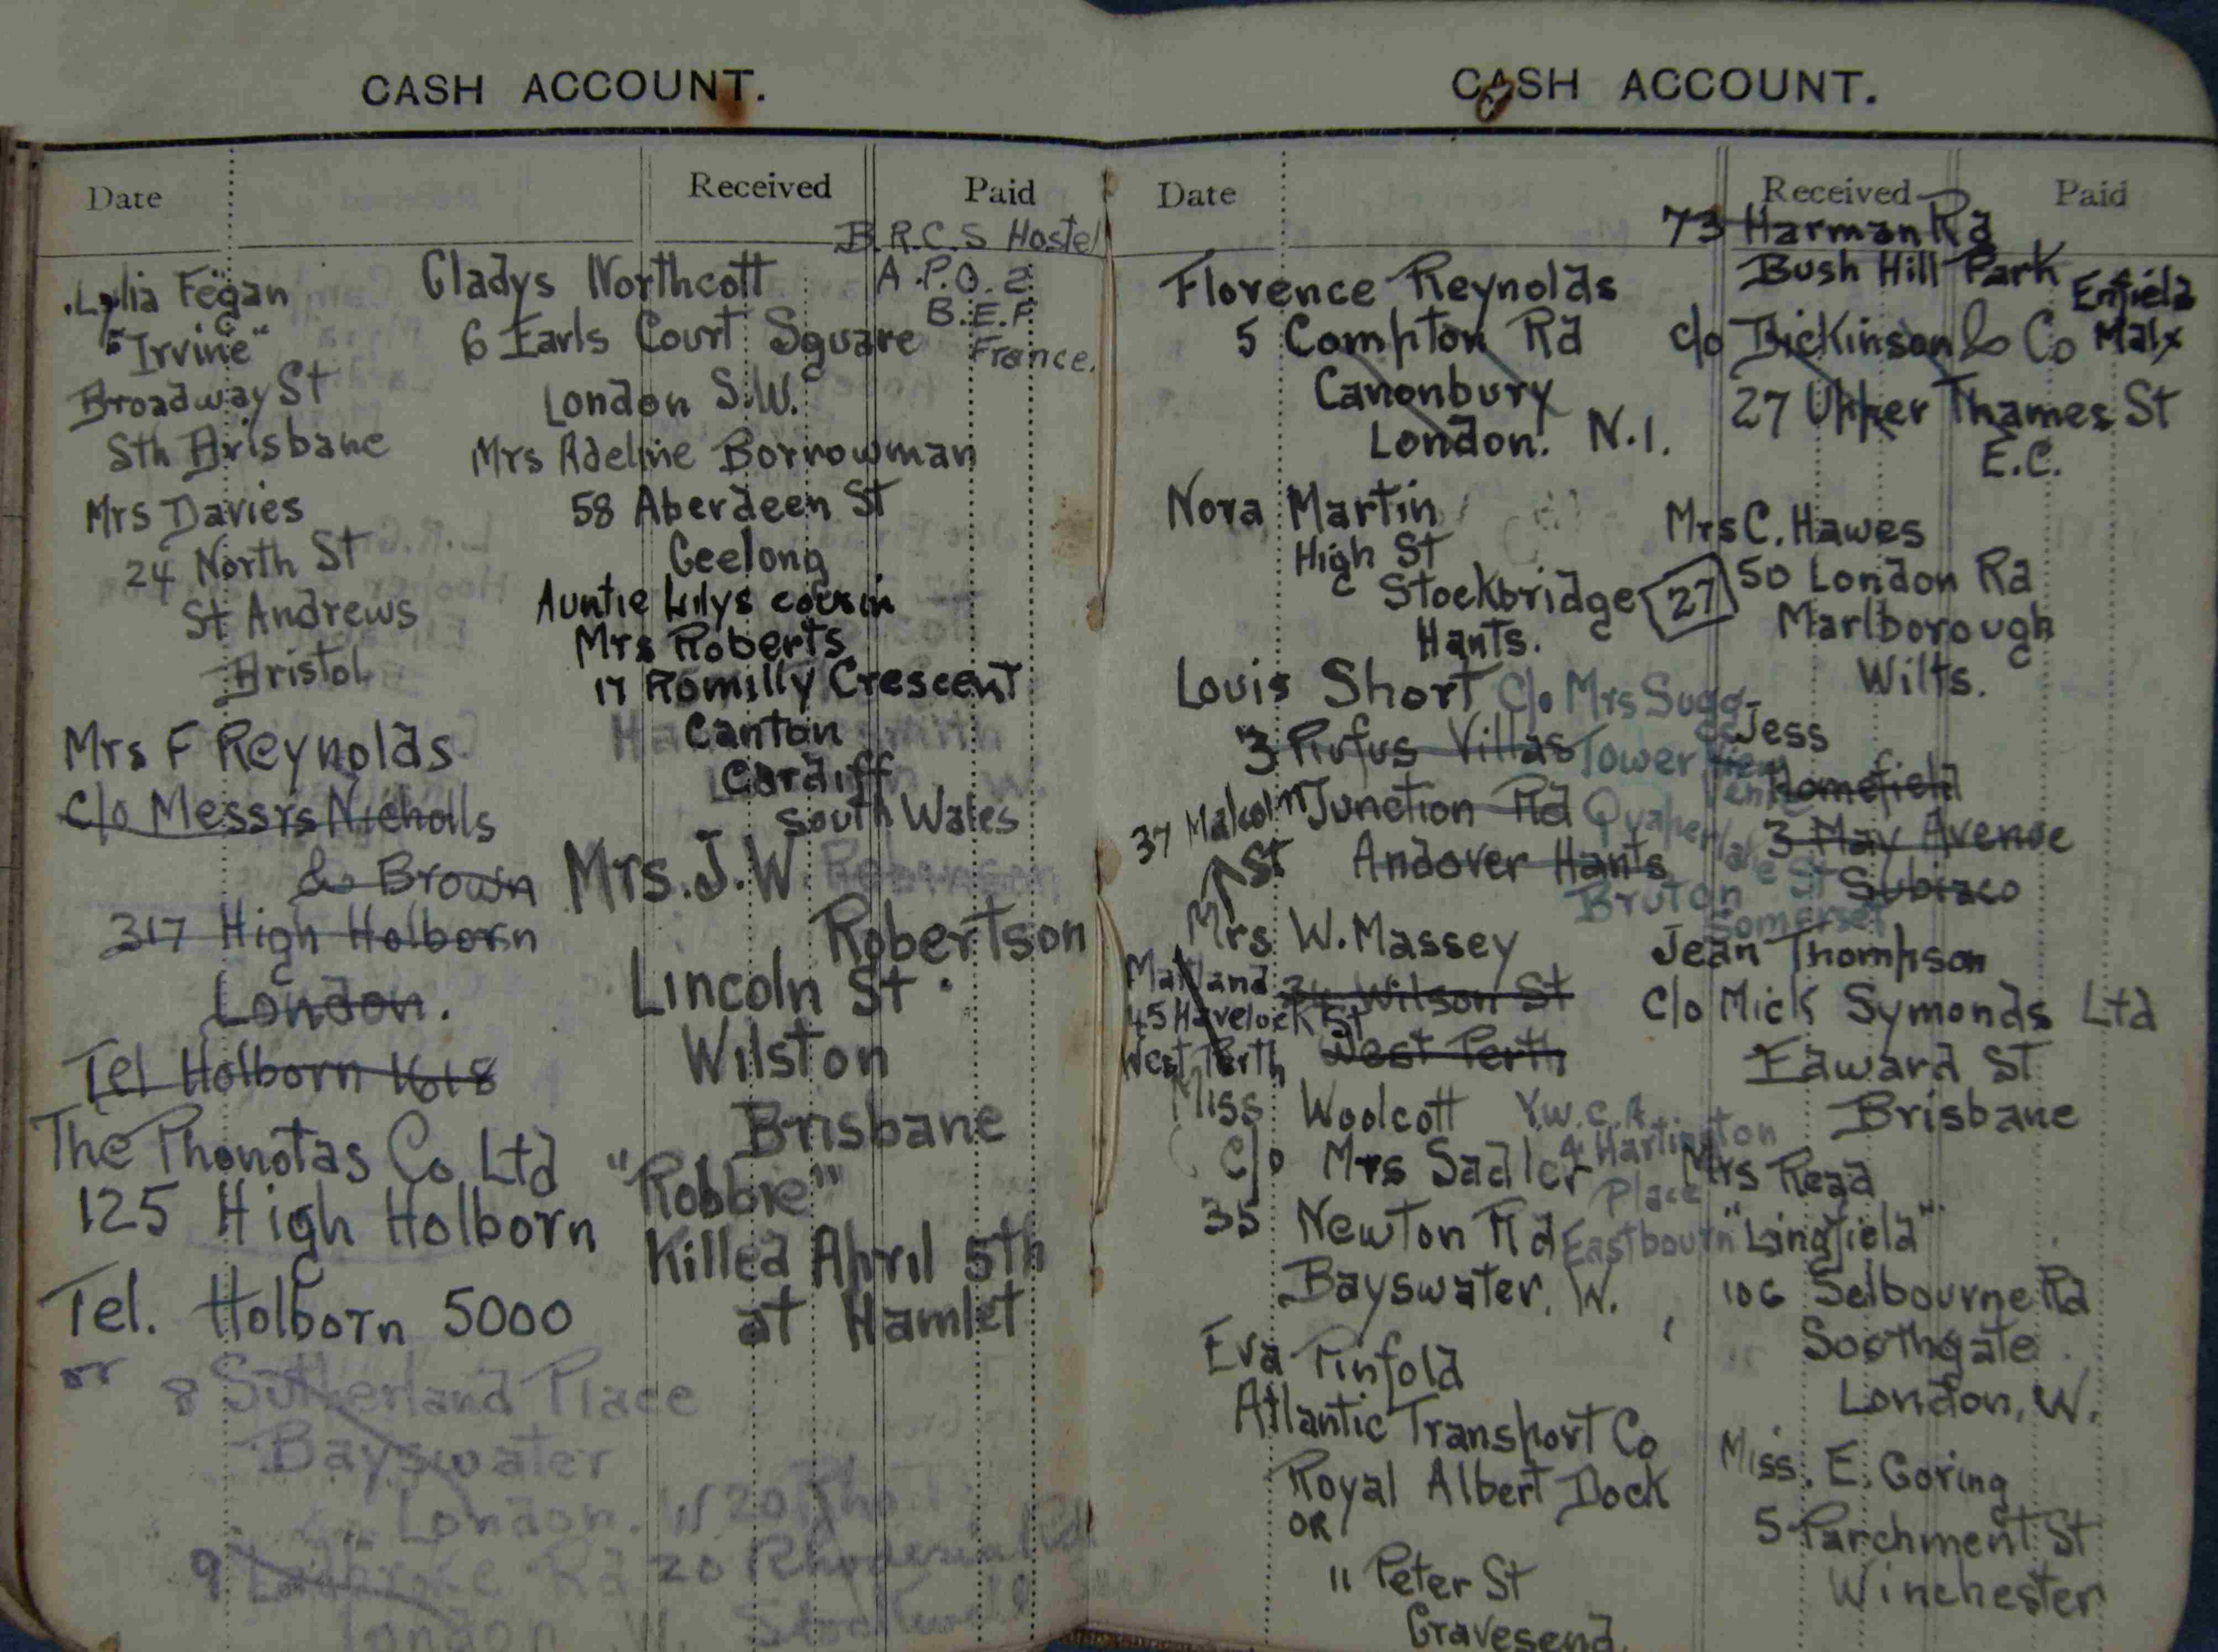 CASH ACCOUNT.
Date Received Paid
Lylia Fegan
"Irvine"
Broadway St
Sth Brisbane
Mrs Davies
24 North St
St Andrews
Bristol
Mrs F Reynolds
c/o Messrs Nicholls
& Brown
317 High Holborn
London.
Tel Holborn 1618
The Phonotas Co Ltd
125 High Holborn
Tel. Holborn 5000
or
8 Sutherland Place
Bayswater
London. W
9 Rd
London W.
20 Rhodesia Rd
Stockwell
B.R.C.S Hostel
A.P.O. 2
B.E.F
France.
Gladys Northcott
6 Earls Court Square
London S.W.
Mrs Adeline Borrowman
58 Aberdeen St
Geelong
Auntie Lilys cousin
Mrs Roberts
17 Romilly Crescent
Canton
Cardiff
South Wales
Mrs. J. W. Robinson
Robertson
Lincoln St.
Wilston
Brisbane
"Robbie"
Killed April 5th
at Hamlet
CASH ACCOUNT.
Date Received Paid
Florence Reynolds
5 Compton Rd
Canonbury
London. N.1.
Nora Martin
High St
Stockbridge
Hants.
27
Louis Short c/o Mrs Sugg
3 Rufus Villas Tower View
Junction Rd Quaperlake St
Andover Hants
Bruton
Somerset
37 Malcolm
St
Mrs W. Massey
34 Wilson St
West Perth
Maitland
45 Havelock St
West Perth
Miss Woolcott Y.W.C.A
c/o Mrs Sadler 4 Hartington
Place
35 Newton Rd Eastbourn
Bayswater. W.
Eva Pinfold
Atlantic Transport Co
Royal Albert Dock
OR
11 Peter St
Gravesend.
73 Harman Rd
Bush Hill Park
Enfield
Malx
c/o Dickinson & Co
27 Upper Thames St
E.C.
Mrs C. Hawes
50 London Rd
Marlborough
Wilts.
Jess
Homefield
3 May Avenue
Subiaco
Jean Thompson
c/o Mick Symonds Ltd
Edward St
Brisbane
Mrs Read
"Lingfield"
106 Selbourne Rd
Southgate
London, W.
Miss. E. Goring
5 Parchment St
Winchester